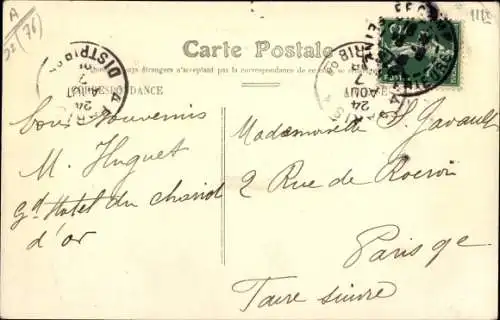 A
32 (76)
1112
Carte Postale
pays étrangers n'acceptent pas la correspondance
CORRESPONDANCE
DISTRIB
24
AOUT
Bons Souvenirs
M. Huguet
Gd Hotel du chariot
d'or
Mademoiselle S. Javault
2 Rue de Rocroy
Paris 9e
Faire suivre